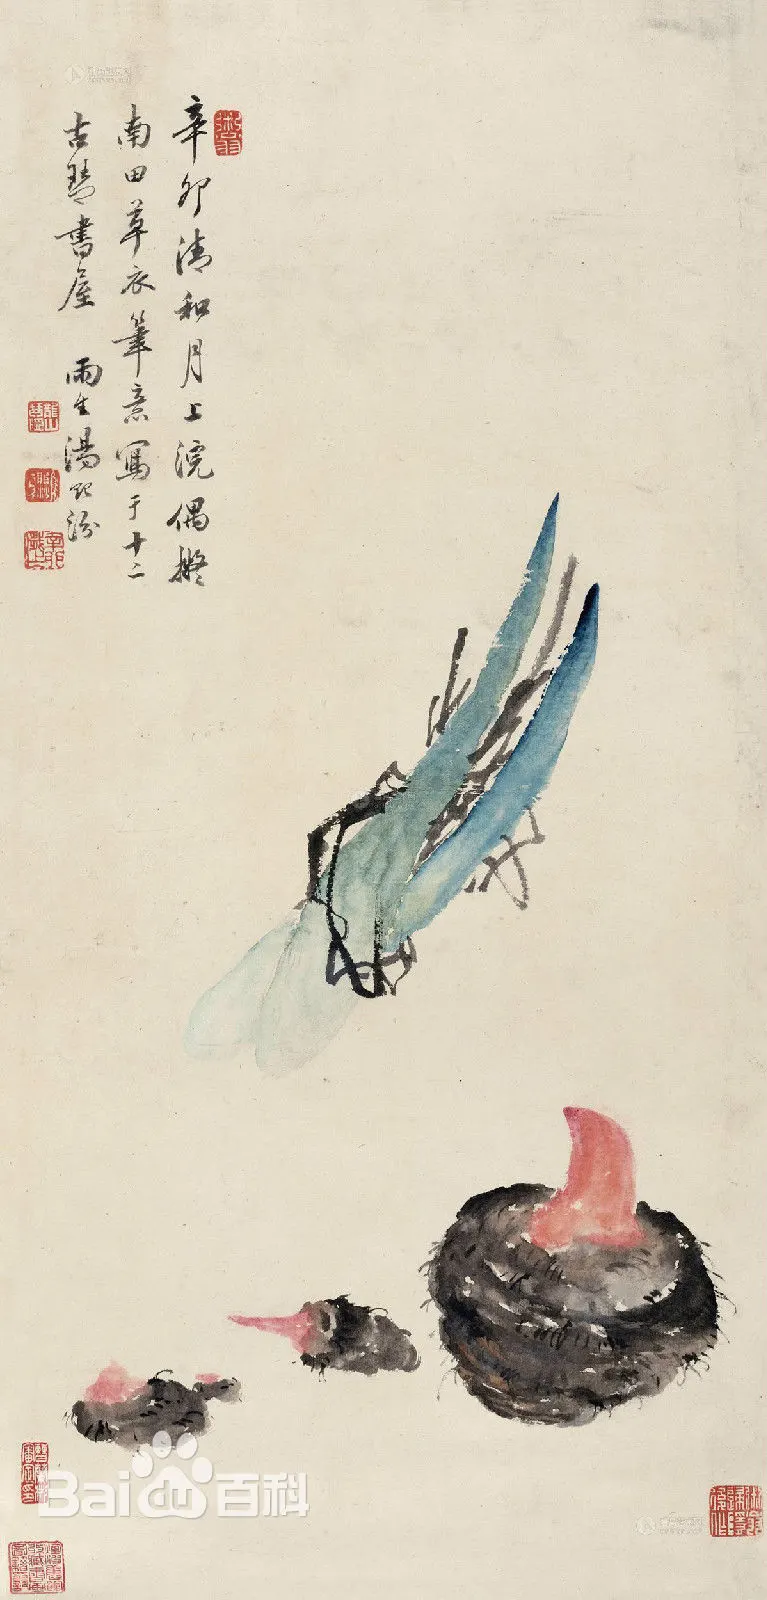 辛卯清和月上浣偶擬
南田草衣筆意寫于十二
古琴書屋 雨生湯貽汾
Baidu百科